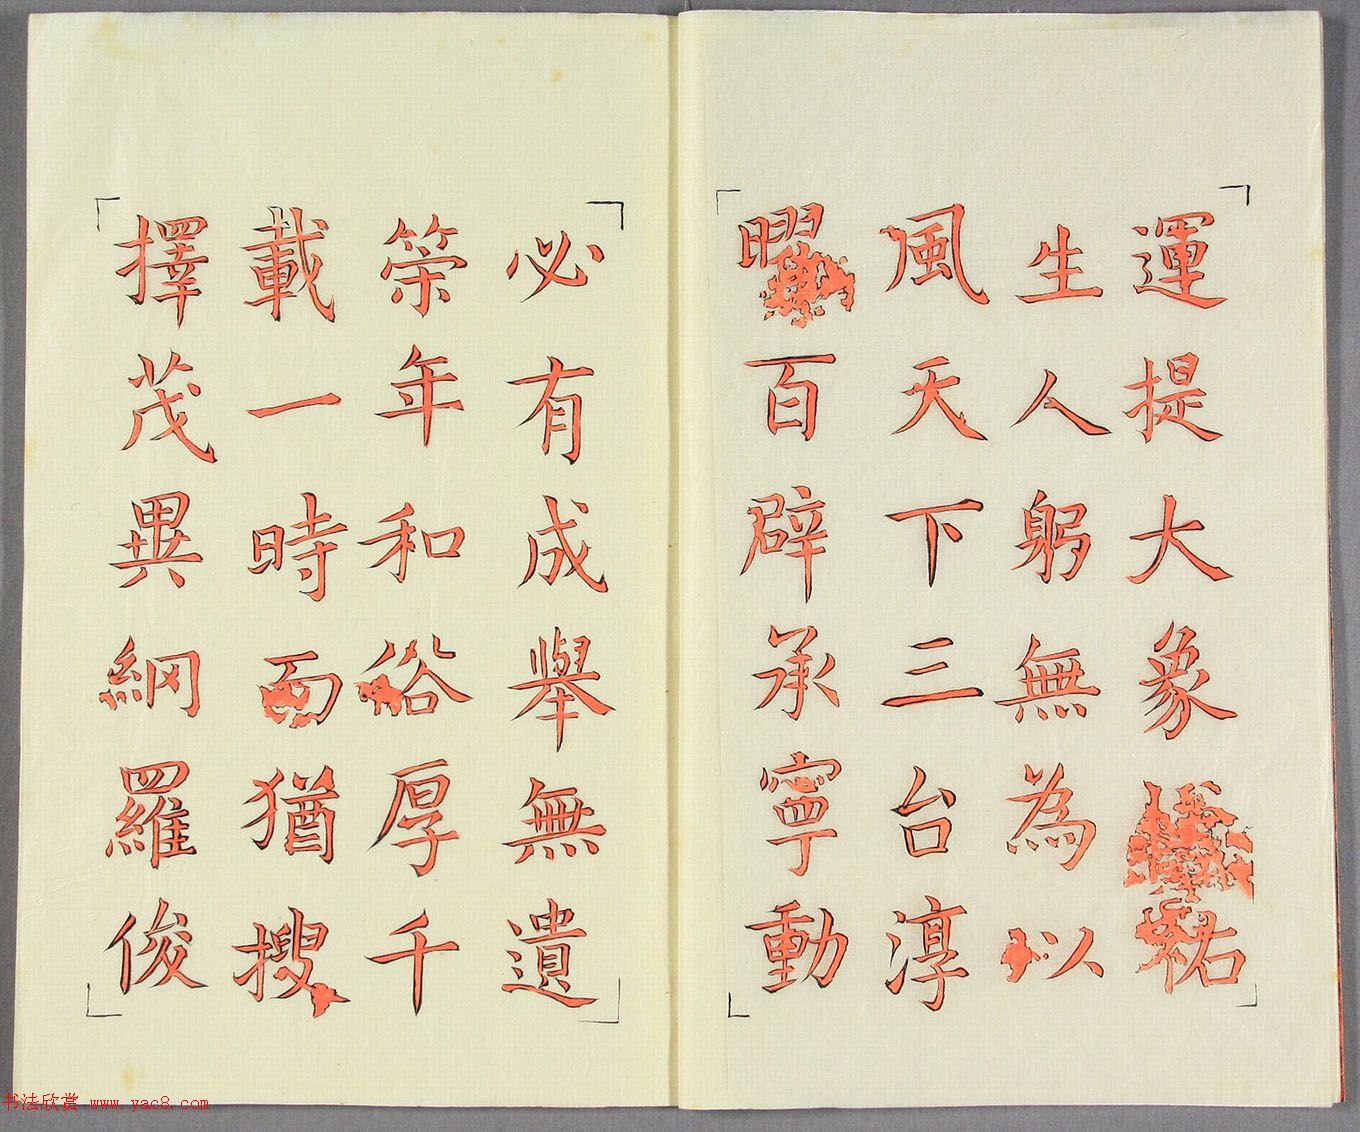 運提大象祐
生人躬無為以
風天下三台淳
曜百辟承寧動
必有成舉無遺
筞年和俗厚千
載一時而猶搜
擇茂異網羅俊
书法欣赏 www.yac8.com